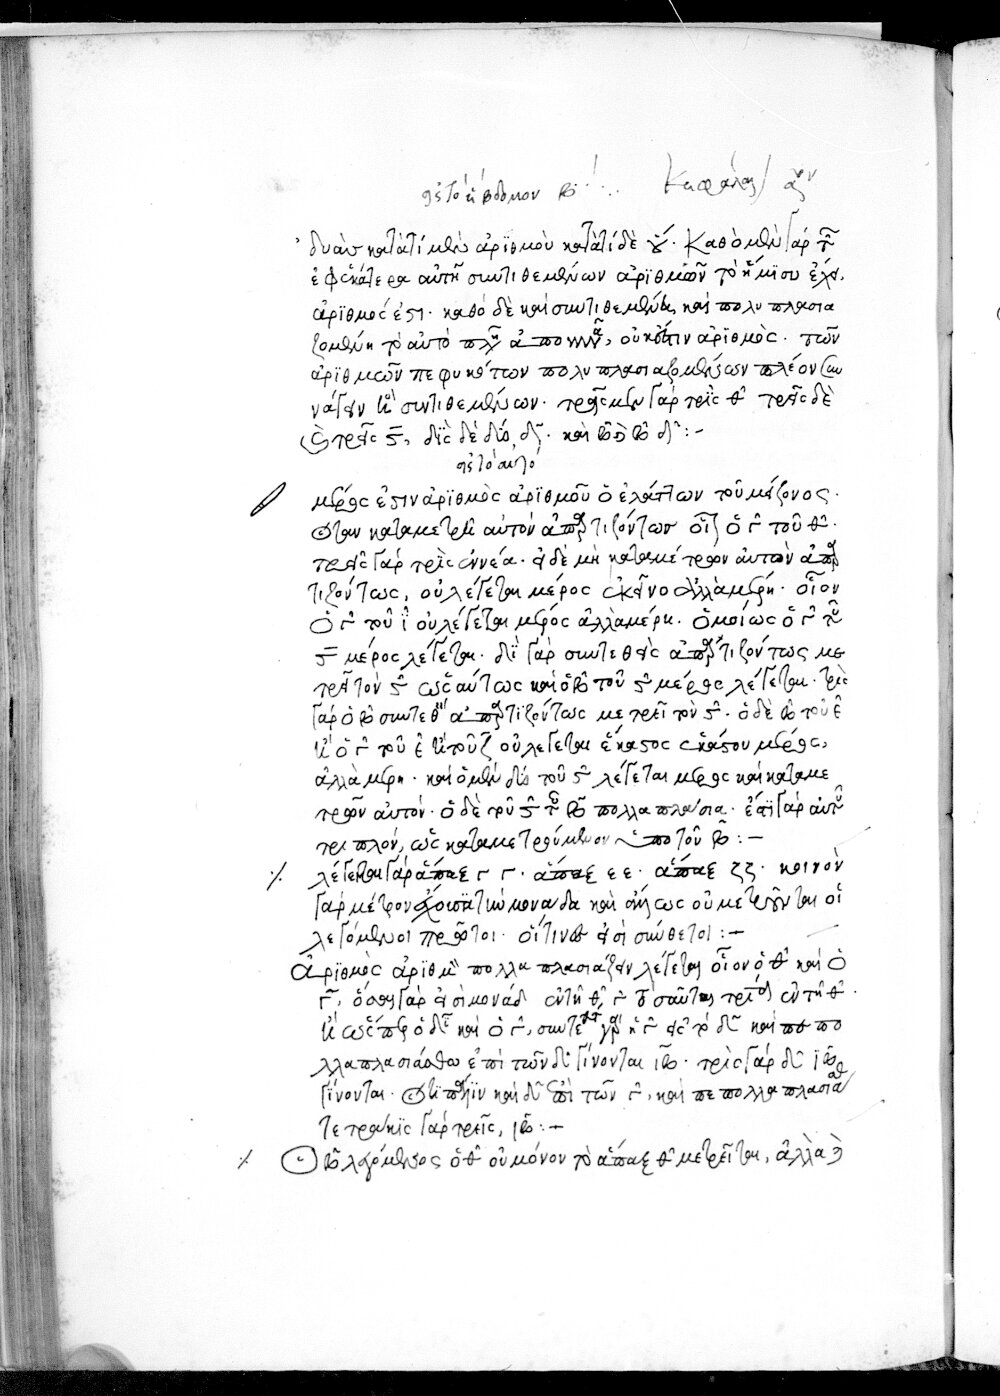 εἰς τὸ ἕβδομον βι Κεφάλαι
δυὰς κατὰ τί μὲν ἀριθμοῦ κατὰ τί δὲ οὔ. Καθὸ μὲν γὰρ τῆς
ἐφ' ἑκάτερα αὐτῆ συντιθεμένων ἀριθμῶν τὸ ἥμισυ
ἀριθμός ἐστι. καθὸ δὲ καὶ συντιθεμένη καὶ πολυπλασια
ζομένη τὸ αὐτὸ πλῆ ἀπο οὐκ ἔστιν ἀριθμὸς. τῶν
ἀριθμῶν πεφυκότων πολυπλασιαζομένων πλέον συν
άγειν ἢ συντιθεμένων. τρεῖς μὲν γὰρ τρὶς θ τρεῖς δὲ
τρεῖς ς, δὶς δὲ δύο δ. καὶ β β δ :-
εἰς τὸ αὐτό
μέρος ἐστὶν ἀριθμὸς ἀριθμοῦ ὁ ἐλάττων τοῦ μείζονος.
ὅταν καταμετρῆ αὐτὸν ἀπαρτιζόντως οἷον ὁ γ τοῦ θ.
τρεῖς γὰρ τρὶς ἐννέα. εἰ δὲ μὴ καταμέτρουν αὐτὸν ἀπαρ
τιζόντως, οὐ λέγεται μέρος ἐκεῖνο ἀλλὰ μέρη. οἷον
ὁ γ τοῦ ι οὐ λέγεται μέρος ἀλλὰ μέρη. ὁμοίως ὁ γ τοῦ
ς μέρος λέγεται. δὶς γὰρ συντεθεὶς ἀπαρτιζόντως με
τρεῖ τὸν ς ὡσαύτως καὶ ὁ β τοῦ ς μέρος λέγεται. τρὶς
γὰρ ὁ β συντεθεὶς ἀπαρτιζόντως μετρεῖ τὸν ς. ὁ δὲ β τοῦ ε
ἢ ὁ γ τοῦ ε ἢ τοῦ ζ οὐ λέγεται ἕκαστος ἑκάστου μέρος,
ἀλλὰ μέρη. καὶ ὁ μὲν δύο τοῦ ς λέγεται μέρος καὶ καταμε
τροῦν αὐτόν. ὁ δὲ τοῦ ς τοῦ β πολλαπλασια. ἔστι γὰρ αὐτοῦ
τριπλοῦν, ὡς καταμετρούμενον ὑπὸ τοῦ β :-
λέγεται γὰρ ἅπαξ γ γ. ἅπαξ ε ε. ἅπαξ ζ ζ. κοινὸν
γὰρ μέτρον ἔχουσι τὴν μονάδα καὶ ἄλλως οὐ μετροῦνται οἱ
λεγόμενοι πρῶτοι. οἵτινες εἰσὶ σύνθετοι :-
ἀριθμὸς ἀριθμὸν πολλαπλασιάζειν λέγεται οἷον ὁ θ καὶ ὁ
γ, ὅσαι γὰρ εἰσὶ μονάδ ἐν τῇ θ, γ τοσαῦτα τρὶς ἐν τῇ θ.
ἢ ὥσπερ ὁ δ καὶ ὁ γ, συντε ὁ γ εἰς τὸ δ καὶ πε πο
λλαπλασιάσθω ἐπὶ τῶν δ γίνονται ιβ. τρὶς γὰρ δ ιβ
γίνονται. ἔτι πάλιν καὶ δ ἐπὶ τῶν γ, καὶ πεπολλαπλασιάσθ
τετράκις γὰρ τρεῖς, ιβ :-
λεγόμενος ὁ θ οὐ μόνον τὸ ἅπαξ θ μετρεῖται, ἀλλὰ